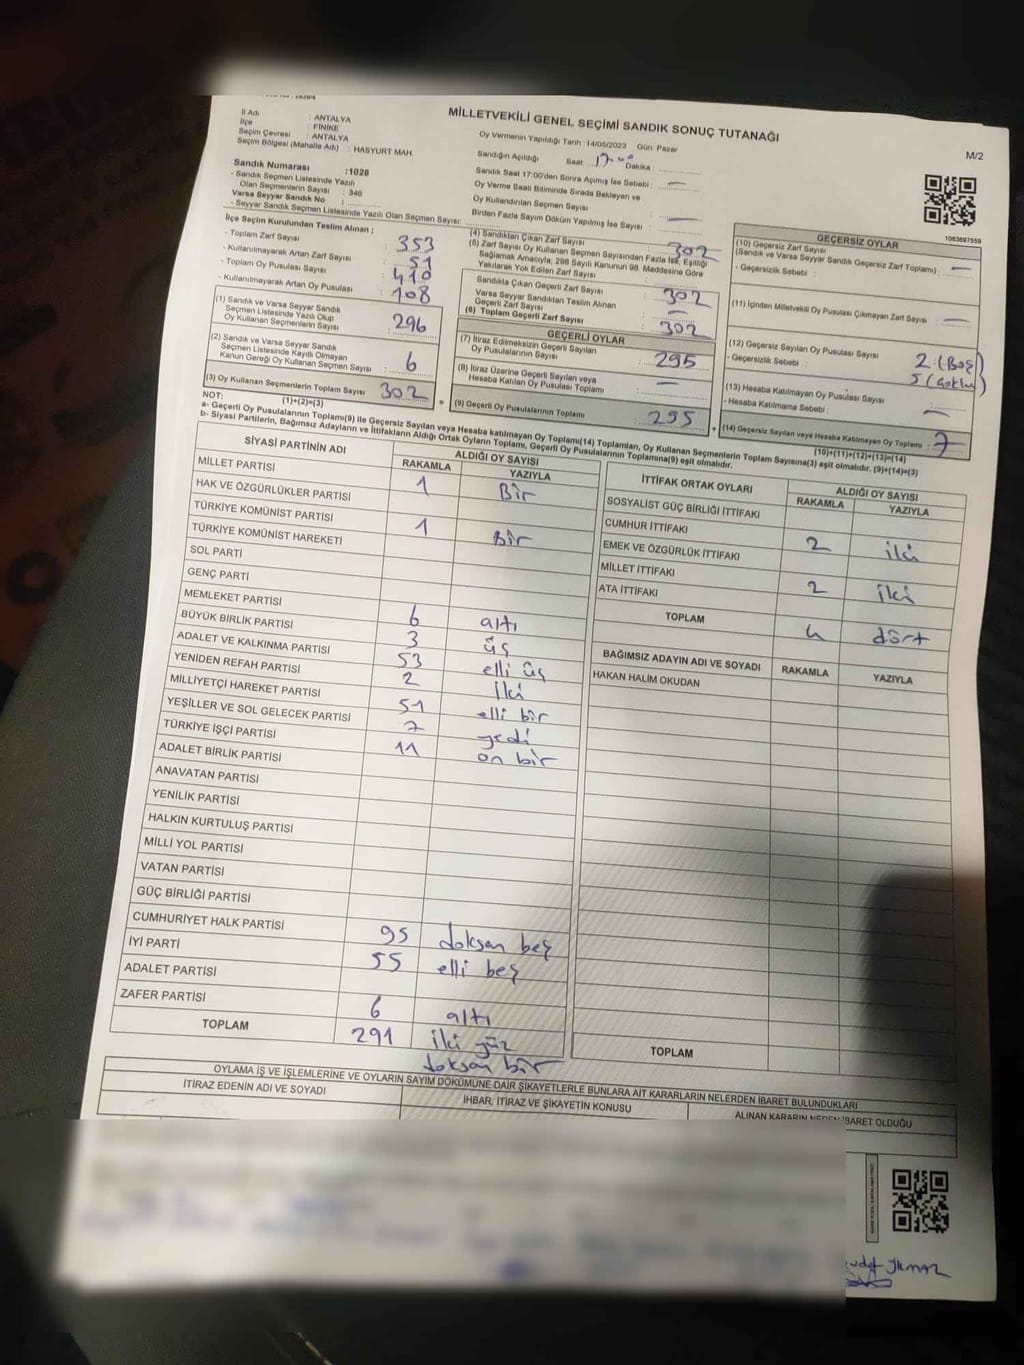 MİLLETVEKİLİ GENEL SEÇİMİ SANDIK SONUÇ TUTANAĞI
M/2
İl Adı : ANTALYA
İlçe : FİNİKE
Seçim Çevresi : ANTALYA
Seçim Bölgesi (Mahalle Adı) : HASYURT MAH.
Sandık Numarası :1028
- Sandık Seçmen Listesinde Yazılı
Olan Seçmenlerin Sayısı : 346
Varsa Seyyar Sandık No :
- Seyyar Sandık Seçmen Listesinde Yazılı Olan Seçmen Sayısı:
Oy Vermenin Yapıldığı Tarih : 14/05/2023 Gün: Pazar
Sandığın Açıldığı Saat: 17.00 Dakika :
Sandık Saat 17:00'den Sonra Açılmış İse Sebebi : —
Oy Verme Saati Bitiminde Sırada Bekleyen ve
Oy Kullandırılan Seçmen Sayısı : —
Birden Fazla Sayım Döküm Yapılmış İse Sayısı : —
1083697559
İlçe Seçim Kurulundan Teslim Alınan ;
- Toplam Zarf Sayısı : 353
- Kullanılmayarak Artan Zarf Sayısı : 51
- Toplam Oy Pusulası Sayısı : 410
- Kullanılmayarak Artan Oy Pusulası : 108
(1) Sandık ve Varsa Seyyar Sandık
Seçmen Listesinde Yazılı Olup
Oy Kullanan Seçmenlerin Sayısı : 296
(2) Sandık ve Varsa Seyyar Sandık
Seçmen Listesinde Kayıtlı Olmayan
Kanun Gereği Oy Kullanan Seçmen Sayısı : 6
(3) Oy Kullanan Seçmenlerin Toplam Sayısı : 302
(1)+(2)=(3)
(4) Sandıktan Çıkan Zarf Sayısı : 302
(5) Zarf Sayısı Oy Kullanan Seçmen Sayısından Fazla İse, Eşitliği
Sağlamak Amacıyla; 298 Sayılı Kanunun 98. Maddesine Göre
Yakılarak Yok Edilen Zarf Sayısı :
Sandıkta Çıkan Geçerli Zarf Sayısı : 302
Varsa Seyyar Sandıktan Teslim Alınan
Geçerli Zarf Sayısı : —
(6) Toplam Geçerli Zarf Sayısı : 302
GEÇERLİ OYLAR
(7) İtiraz Edilmeksizin Geçerli Sayılan
Oy Pusulalarının Sayısı : 295
(8) İtiraz Üzerine Geçerli Sayılan veya
Hesaba Katılan Oy Pusulası Toplamı : —
(9) Geçerli Oy Pusulalarının Toplamı : 295
GEÇERSİZ OYLAR
(10) Geçersiz Zarf Sayısı
(Sandık ve Varsa Seyyar Sandık Geçersiz Zarf Toplamı) : —
- Geçersizlik Sebebi :
(11) İçinden Milletvekili Oy Pusulası Çıkmayan Zarf Sayısı : —
(12) Geçersiz Sayılan Oy Pusulası Sayısı : 2 (Boş)
- Geçersizlik Sebebi : 5
(13) Hesaba Katılmayan Oy Pusulası Sayısı : —
- Hesaba Katılmama Sebebi :
(14) Geçersiz Sayılan veya Hesaba Katılmayan Oy Toplamı : 7
(10)+(11)+(12)+(13)=(14)
NOT:
a- Geçerli Oy Pusulalarının Toplamı(9) ile Geçersiz Sayılan veya Hesaba katılmayan Oy Toplamı(14) Toplamları, Oy Kullanan Seçmenlerin Toplam Sayısına(3) eşit olmalıdır. (9)+(14)=(3)
b- Siyasi Partilerin, Bağımsız Adayların ve İttifakların Aldığı Ortak Oyların Toplamı, Geçerli Oy Pusulalarının Toplamına(9) eşit olmalıdır.
SİYASİ PARTİNİN ADI ALDIĞI OY SAYISI
RAKAMLA YAZIYLA
MİLLET PARTİSİ 1 Bir
HAK VE ÖZGÜRLÜKLER PARTİSİ
TÜRKİYE KOMÜNİST PARTİSİ 1 Bir
TÜRKİYE KOMÜNİST HAREKETİ
SOL PARTİ
GENÇ PARTİ
MEMLEKET PARTİSİ 6 altı
BÜYÜK BİRLİK PARTİSİ 3 üş
ADALET VE KALKINMA PARTİSİ 53 elli üş
YENİDEN REFAH PARTİSİ 2 iki
MİLLİYETÇİ HAREKET PARTİSİ 51 elli bir
YEŞİLLER VE SOL GELECEK PARTİSİ 7 yedi
TÜRKİYE İŞÇİ PARTİSİ 11 on bir
ADALET BİRLİK PARTİSİ
ANAVATAN PARTİSİ
YENİLİK PARTİSİ
HALKIN KURTULUŞ PARTİSİ
MİLLİ YOL PARTİSİ
VATAN PARTİSİ
GÜÇ BİRLİĞİ PARTİSİ
CUMHURİYET HALK PARTİSİ 95 doksan beş
İYİ PARTİ 55 elli beş
ADALET PARTİSİ
ZAFER PARTİSİ 6 altı
TOPLAM 291 iki yüz
doksan bir
İTTİFAK ORTAK OYLARI ALDIĞI OY SAYISI
RAKAMLA YAZIYLA
SOSYALİST GÜÇ BİRLİĞİ İTTİFAKI
CUMHUR İTTİFAKI 2 iki
EMEK VE ÖZGÜRLÜK İTTİFAKI
MİLLET İTTİFAKI 2 iki
ATA İTTİFAKI
TOPLAM 4 dört
BAĞIMSIZ ADAYIN ADI VE SOYADI RAKAMLA YAZIYLA
HAKAN HALİM OKUDAN
TOPLAM
OYLAMA İŞ VE İŞLEMLERİNE VE OYLARIN SAYIM DÖKÜMÜNE DAİR ŞİKAYETLERLE BUNLARA AİT KARARLARIN NELERDEN İBARET BULUNDUKLARI
İTİRAZ EDENİN ADI VE SOYADI
İHBAR, İTİRAZ VE ŞİKAYETİN KONUSU
ALINAN KARARIN NEDEN İBARET OLDUĞU
YILMAZ